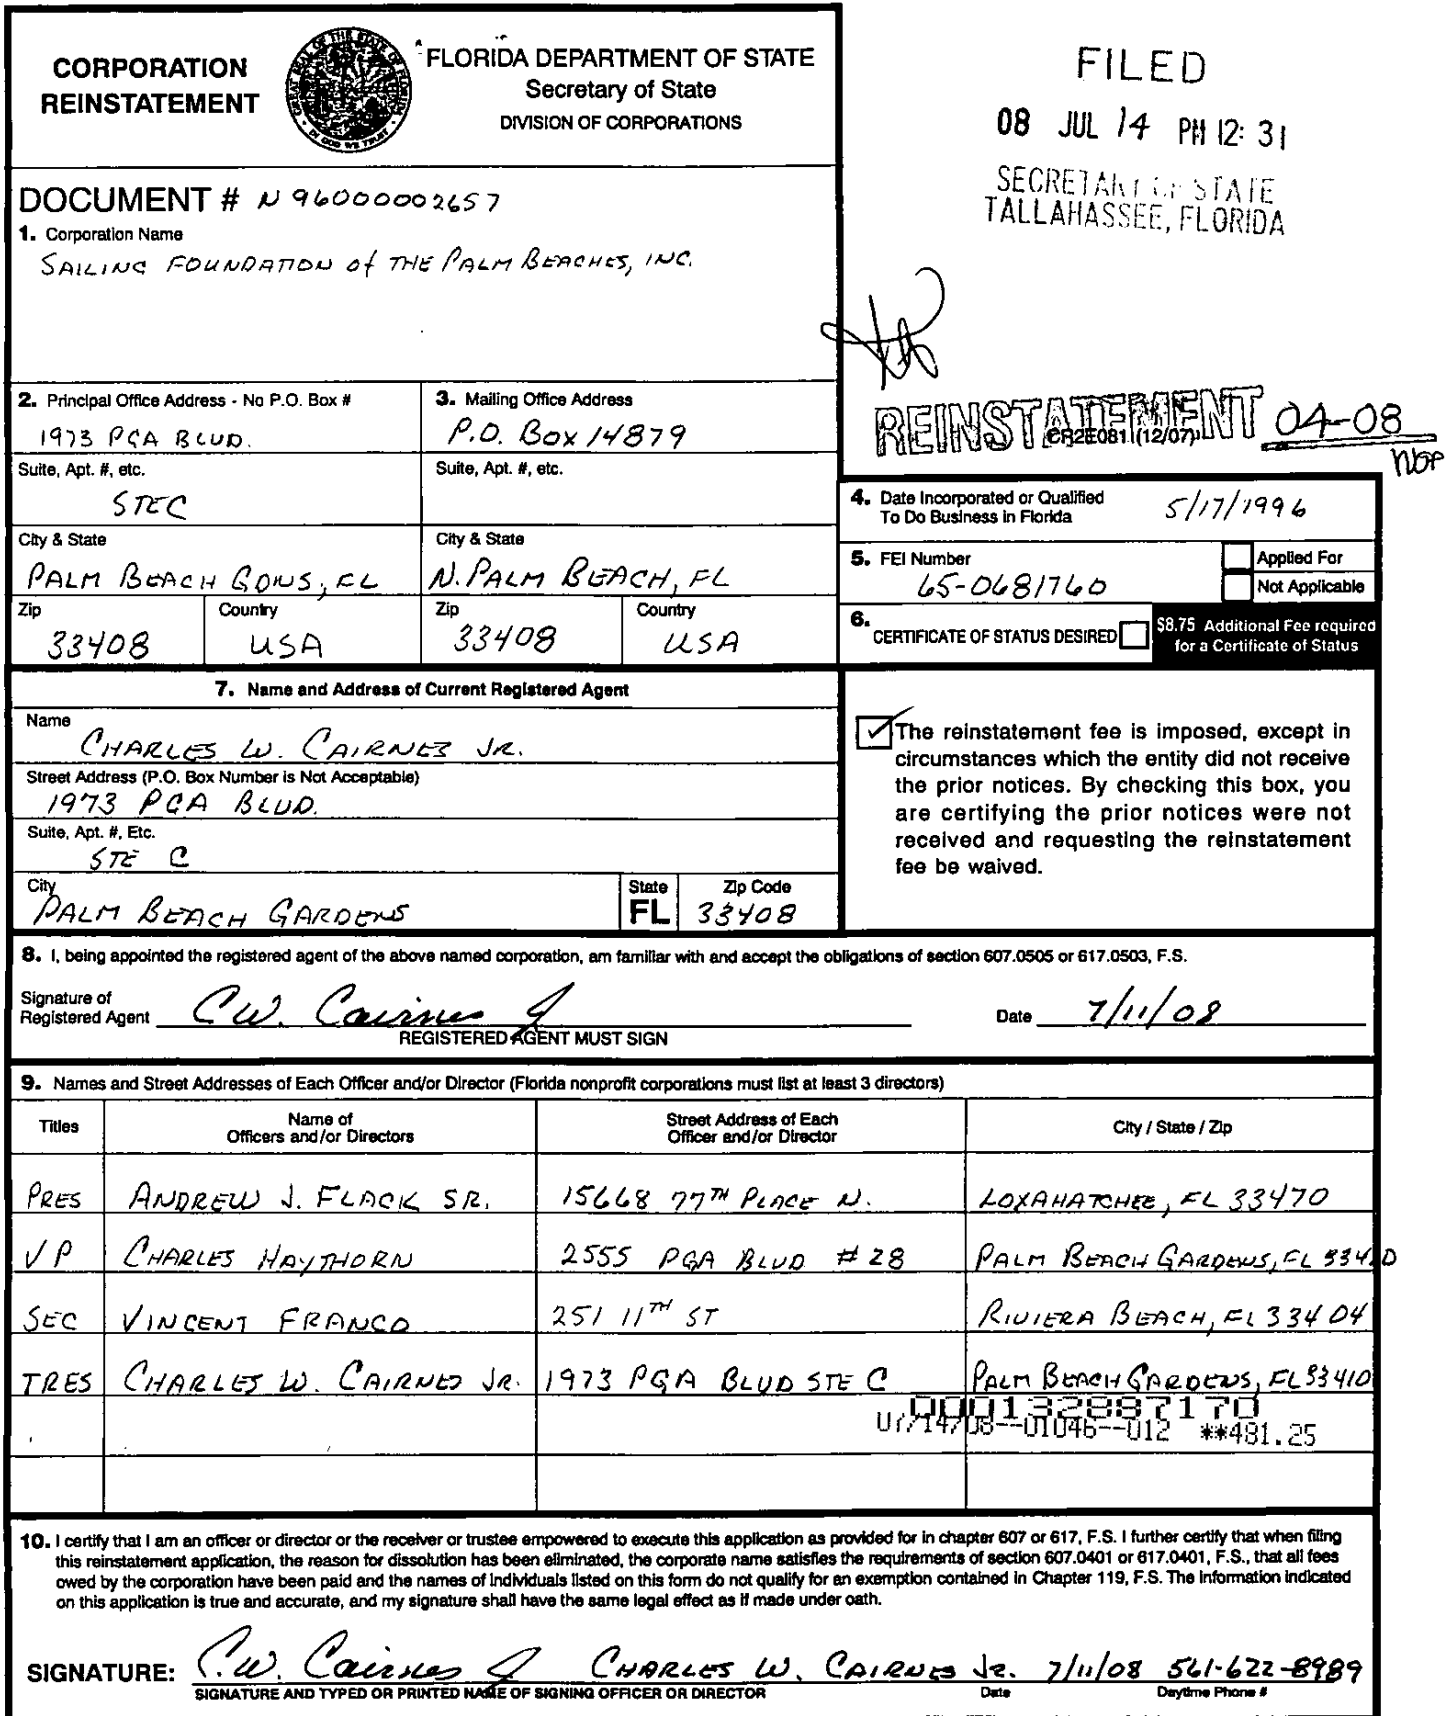 CORPORATION
REINSTATEMENT
GREAT SEAL OF THE STATE OF FLORIDA
IN GOD WE TRUST
FLORIDA DEPARTMENT OF STATE
Secretary of State
DIVISION OF CORPORATIONS
FILED
08 JUL 14 PM 12: 31
SECRETARY OF STATE
TALLAHASSEE, FLORIDA
DOCUMENT # N96000002657
1. Corporation Name
SAILING FOUNDATION of THE PALM BEACHES, INC.
REINSTATEMENT 04-08
CR2E081 (12/07)
2. Principal Office Address - No P.O. Box #
1973 PGA BLVD.
3. Mailing Office Address
P.O. Box 14879
Suite, Apt. #, etc.
STE C
Suite, Apt. #, etc.
City & State
PALM BEACH GDNS, FL
City & State
N. PALM BEACH, FL
Zip
33408
Country
USA
Zip
33408
Country
USA
4. Date Incorporated or Qualified
To Do Business in Florida
5/17/1996
5. FEI Number
65-0681760
Applied For
Not Applicable
6. CERTIFICATE OF STATUS DESIRED
$8.75 Additional Fee required
for a Certificate of Status
7. Name and Address of Current Registered Agent
Name
CHARLES W. CAIRNES JR.
Street Address (P.O. Box Number is Not Acceptable)
1973 PGA BLVD.
Suite, Apt. #, Etc.
STE C
City
PALM BEACH GARDENS
State
FL
Zip Code
33408
The reinstatement fee is imposed, except in
circumstances which the entity did not receive
the prior notices. By checking this box, you
are certifying the prior notices were not
received and requesting the reinstatement
fee be waived.
8. I, being appointed the registered agent of the above named corporation, am familiar with and accept the obligations of section 607.0505 or 617.0503, F.S.
Signature of
Registered Agent C.W. Cairnes Jr Date 7/11/08
REGISTERED AGENT MUST SIGN
9. Names and Street Addresses of Each Officer and/or Director (Florida nonprofit corporations must list at least 3 directors)
Titles
Name of
Officers and/or Directors
Street Address of Each
Officer and/or Director
City / State / Zip
PRES ANDREW J. FLACK SR. 15668 77TH PLACE N. LOXAHATCHEE, FL 33470
VP CHARLES HAYTHORN 2555 PGA BLVD #28 PALM BEACH GARDENS, FL 33410
SEC VINCENT FRANCO 251 11TH ST RIVIERA BEACH, FL 33404
TRES CHARLES W. CAIRNES JR. 1973 PGA BLVD STE C PALM BEACH GARDENS, FL 33410
000132887170
07/14/08--01046--012 **481.25
10. I certify that I am an officer or director or the receiver or trustee empowered to execute this application as provided for in chapter 607 or 617, F.S. I further certify that when filing
this reinstatement application, the reason for dissolution has been eliminated, the corporate name satisfies the requirements of section 607.0401 or 617.0401, F.S., that all fees
owed by the corporation have been paid and the names of individuals listed on this form do not qualify for an exemption contained in Chapter 119, F.S. The information indicated
on this application is true and accurate, and my signature shall have the same legal effect as if made under oath.
SIGNATURE: C.W. Cairnes Jr CHARLES W. CAIRNES JR. 7/11/08 561-622-8989
SIGNATURE AND TYPED OR PRINTED NAME OF SIGNING OFFICER OR DIRECTOR Date Daytime Phone #